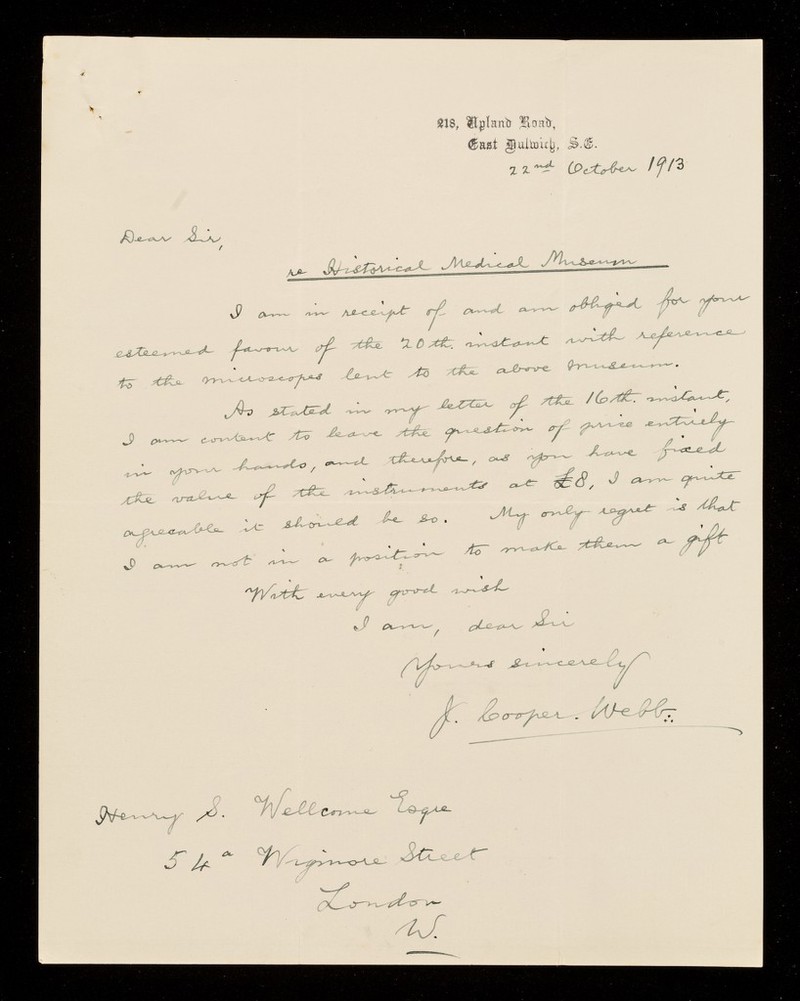 218, Upland Road,
East Dulwich, S.E.
22nd October 1913
Dear Sir,
re Historical Medical Museum
I am in receipt of and am obliged for your
esteemed favour of the 20th. instant with reference
to the microscopes lent to the above Museum.
As stated in my letter of the 16th. instant,
I am content to leave the question of price entirely
in your hands, and therefore, as you have fixed
the value of the instruments at £8, I am quite
agreeable it should be so. My only regret is that
I am not in a position to make them a gift
With every good wish
I am, dear Sir
Yours sincerely
J. Cooper. Webb.
Henry S. Wellcome Esqre
54a Wigmore Street
London
W.